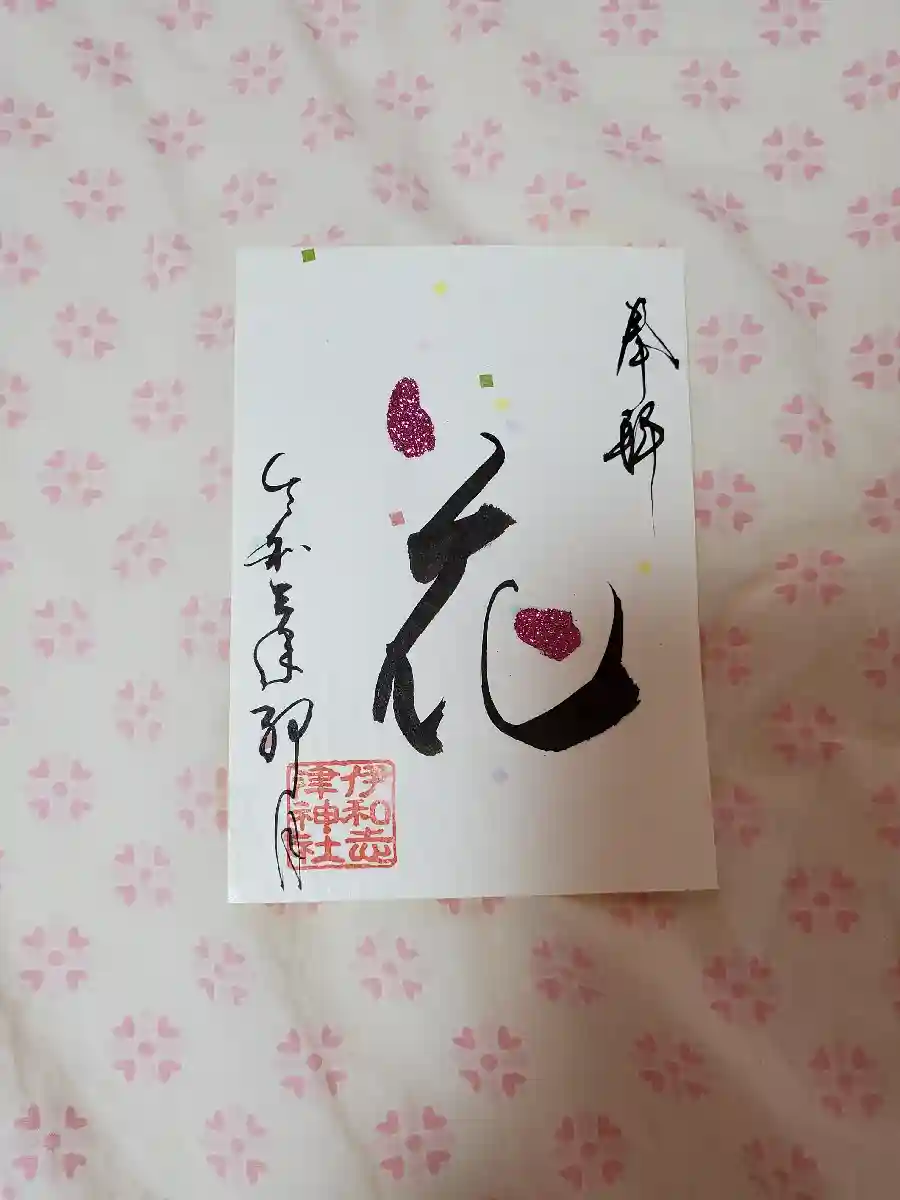 奉拝
花
令和三年卯月
伊和志
津神社